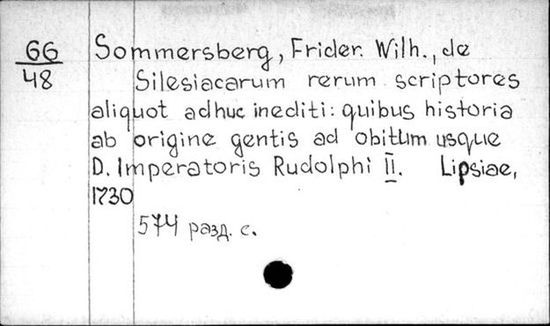 66
48
Sommersberg, Frider. Wilh., de
Silesiacarum rerum scriptores
aliquot adhuc inediti: quibus historia
ab origine gentis ad obitum usque
D. Imperatoris Rudolphi II. Lipsiae,
1730
574 разд. с.